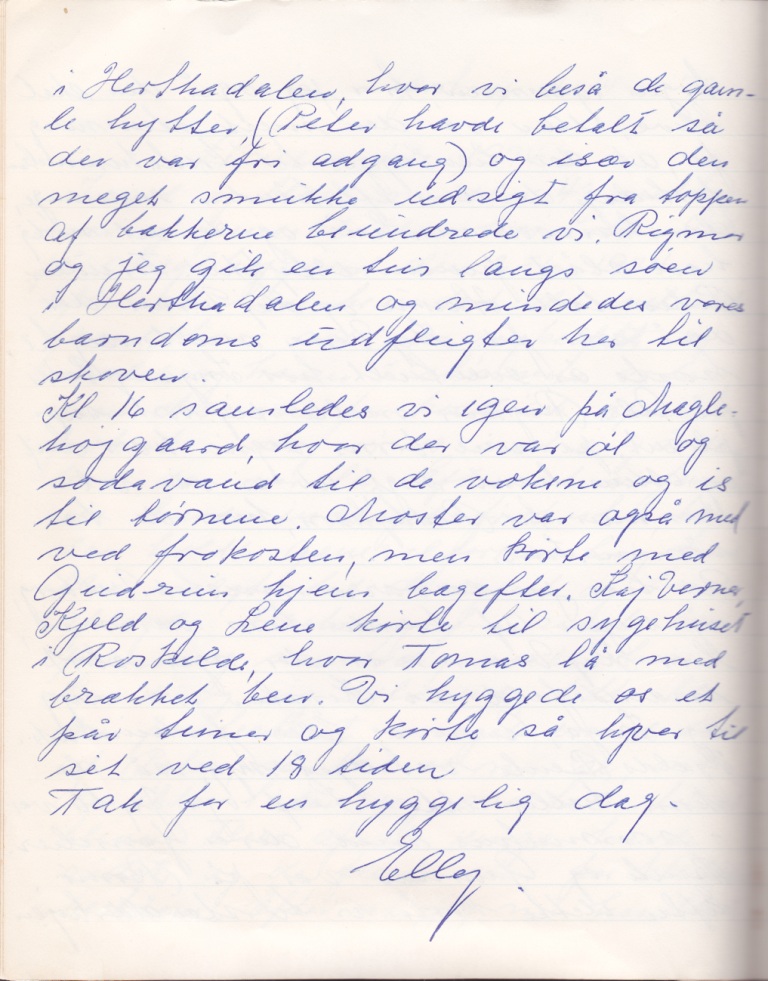 i Herthadalen, hvor vi beså de gam-
le hytter, (Peter havde betalt så
der var fri adgang) og især den
meget smukke udsigt fra toppen
af bakkerne beundrede vi. Rigmor
og jeg gik en tur langs søen
i Herthadalen og mindedes vores
barndoms udflugter her til
skoven.
Kl 16 samledes vi igen på Magle-
højgaard, hvor der var øl og
sodavand til de voksne og is
til børnene. Moster var også med
ved frokosten, men kørte med
Gudrun hjem bagefter. Kaj Verner,
Kjeld og Lene kørte til sygehuset
i Roskilde, hvor Tomas lå med
brækket ben. Vi hyggede os et
pår timer og kørte så hver til
sit ved 18 tiden
Tak for en hyggelig dag.
Elly.